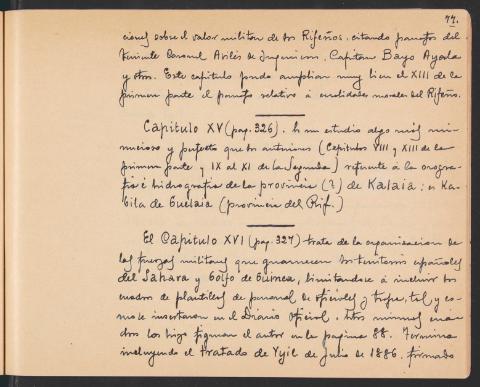 77.
ciones sobre el valor militar de los Rifeños, citando parrafos del
Teniente Coronel Avilés de Ingenieros, Capitan Bayo Ayala
y otros. Este capitulo puede ampliar muy bien el XIII de la
primera parte el parrafo relativo á cualidades morales del Rifeño.
Capitulo XV (pag. 326). Es un estudio algo más mi-
nucioso y perfecto que los anteriores (Capitulos VIII y XIII de la
primera parte y IX al XI de la Segunda) referente á la orogra-
fia é hidrografia de la provincia (?) de Kalaia; es Ka-
bila de Guelaia (provincia del Rif.)
El Capitulo XVI (pag. 327) trata de la organizacion de
las fuerzas militares que guarnecen los territorios españoles
del Sahara y Golfo de Guinea, limitandose á incluir los
cuadros de plantillas de personal de oficiales y tropa, tal y co-
mo se insertaron en el Diario Oficial. Estos mismos cua-
dros los hizo figurar el autor en la pagina 88. Termina
incluyendo el tratado de Yyil de Julio de 1886, firmado